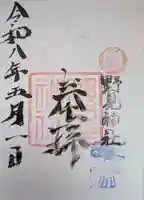 野見神社
奉拝
令和八年五月一日